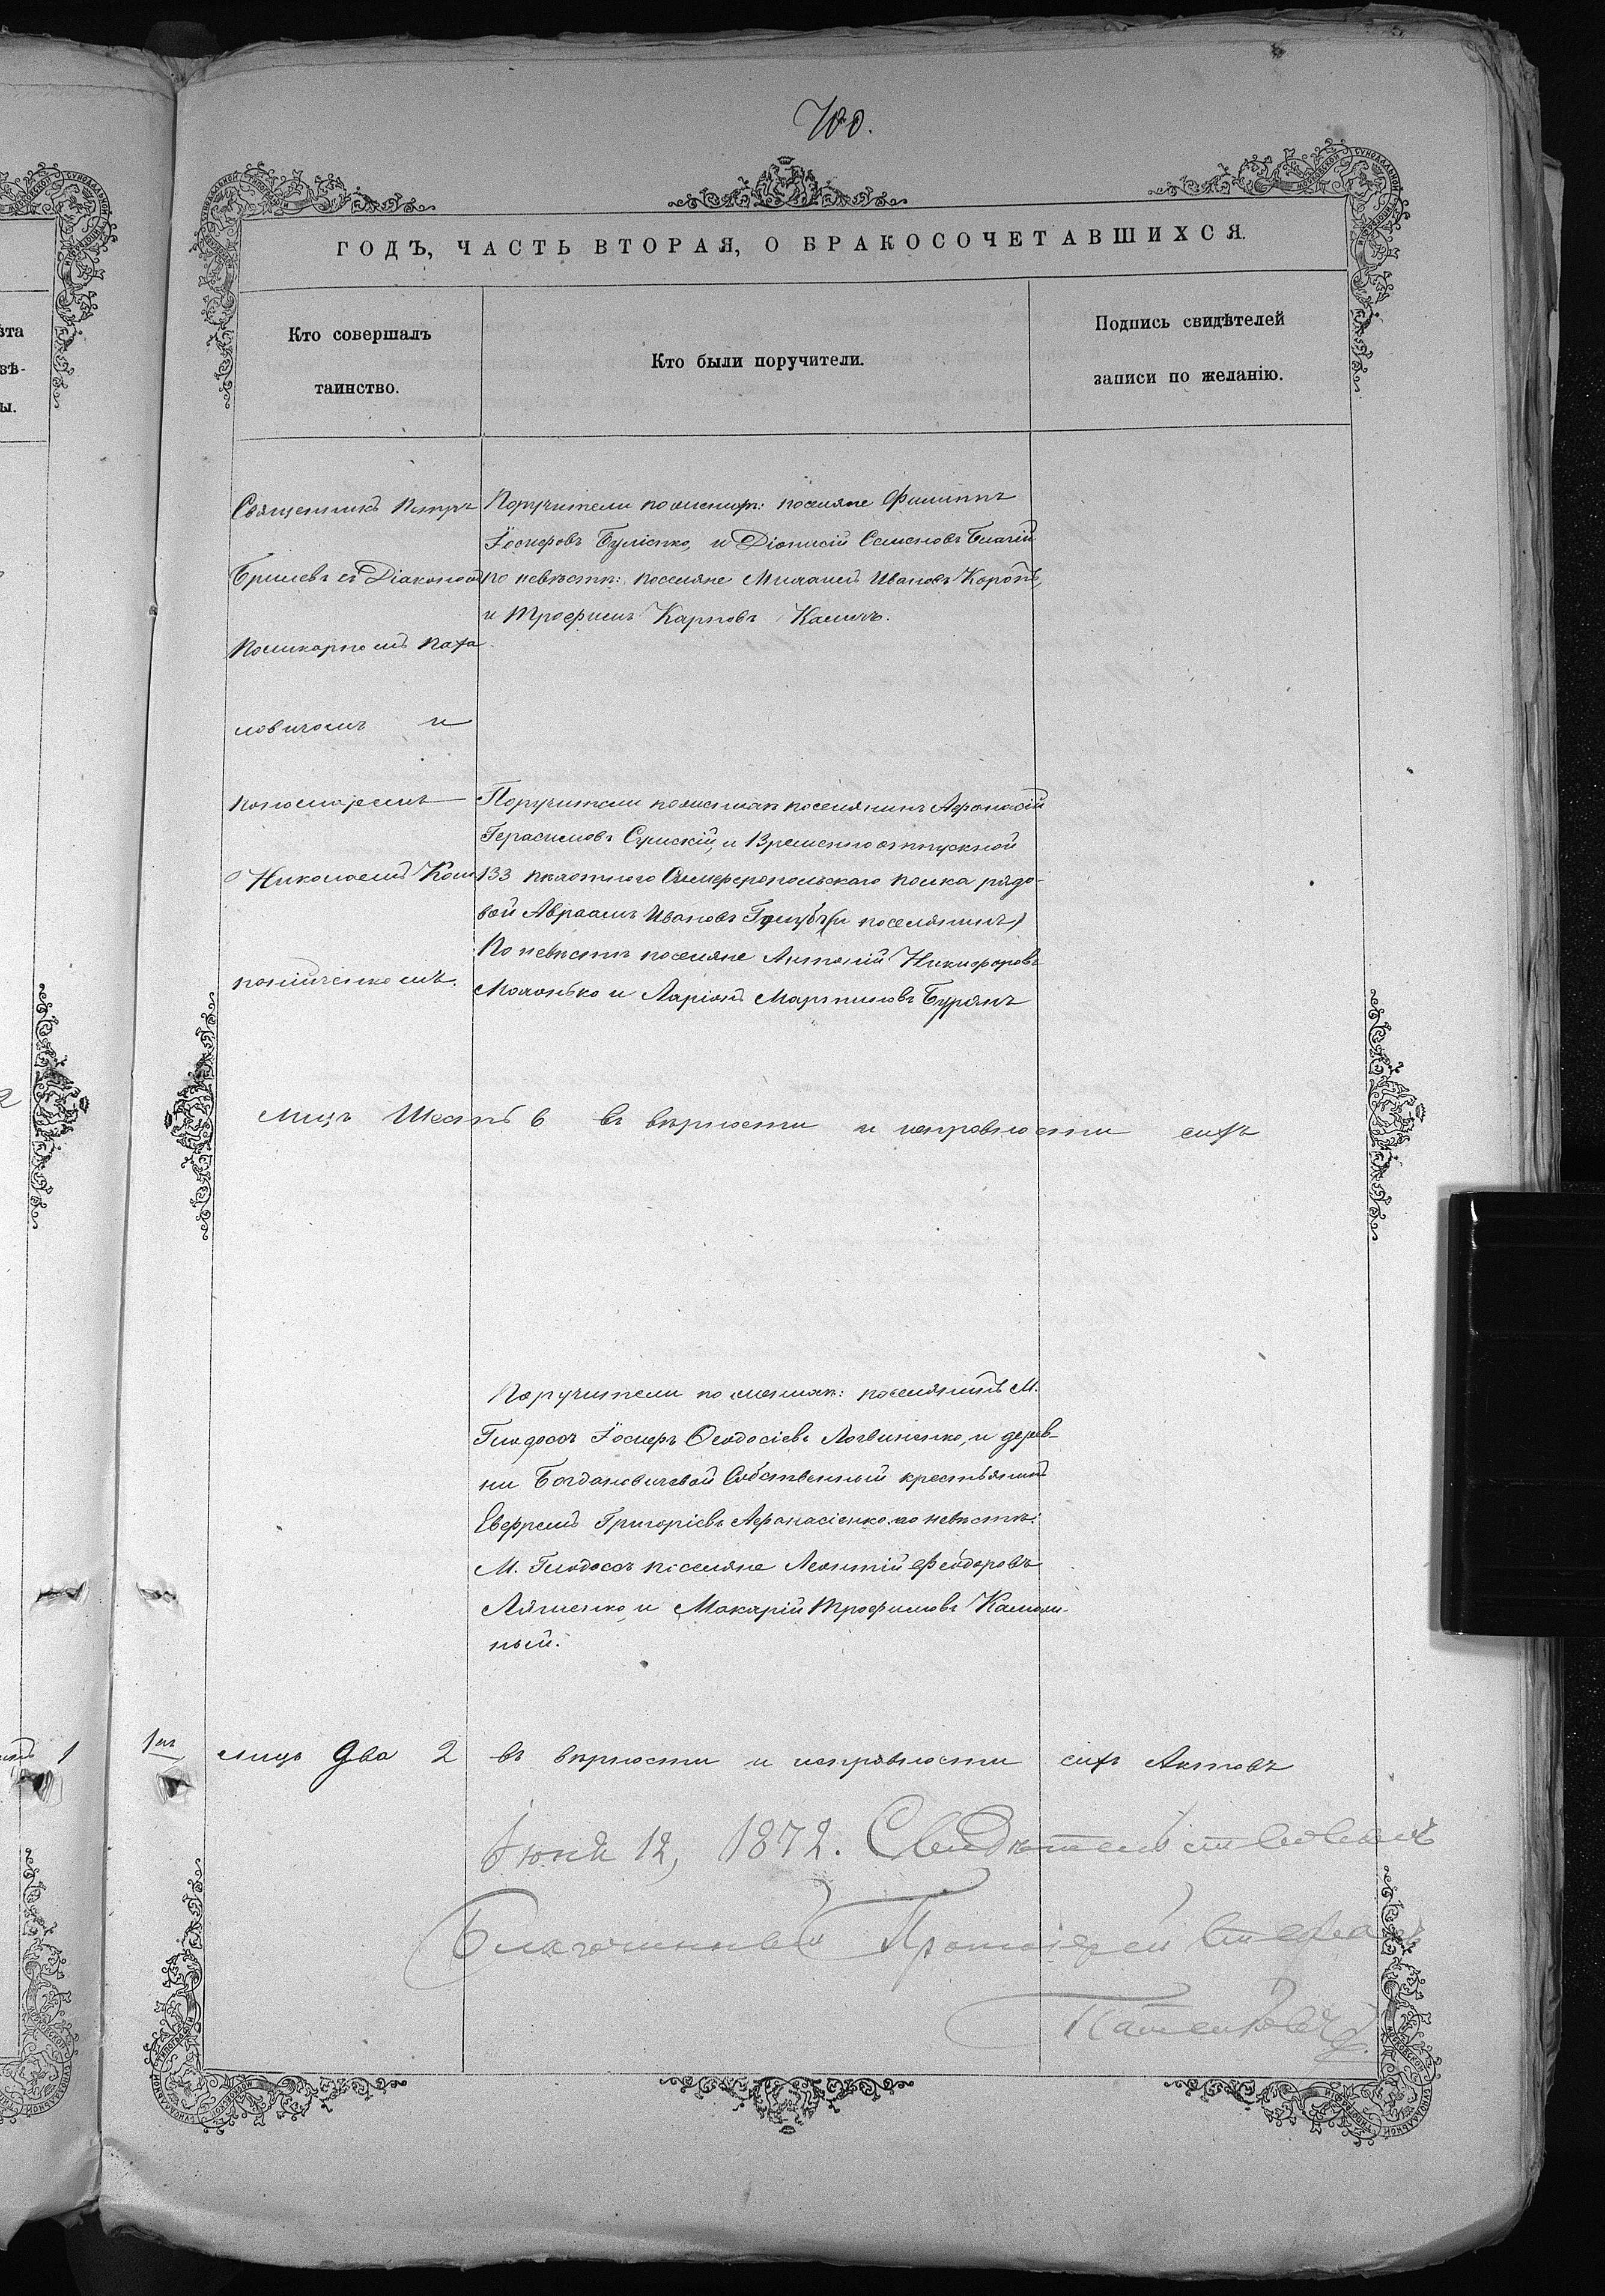 700.
ГОДЪ, ЧАСТЬ ВТОРАЯ, О БРАКОСОЧЕТАВШИХСЯ.
Кто совершалъ
таинство.
Кто были поручители.
Подпись свидѣтелей
записи по желанію.
Священникъ Петръ
Бриллевъ съ Діакономъ
Поликарпомъ Каза
новичомъ и
пономаремъ
Николаемъ Ком
панійченкомъ.
Поручители по женихѣ: поселяне Филиппъ
Іосифовъ Буліенко, и Діонисій Семеновъ
по невѣстѣ: поселяне Михаилъ Ивановъ Коропъ,
и Трофимъ Карповъ
Поручители по женихѣ поселянинъ Афанасій
Герасимовъ Сумскій, и Временно отпускной
133 пѣхотнаго Симферопольскаго полка рядо-
вой Авраамъ Ивановъ (и поселянинъ)
По невѣстѣ поселяне Антоній Никифоровъ
и Ларіонъ Мартиновъ Бурянъ
лицъ Шесть 6 въ вѣрности и исправности сихъ
Поручители по женихѣ: поселянинъ М.
Глодосъ Іосифъ Феодосіевъ Логвиненко, и дерев-
ни Богдановичевой Собственный крестьянинъ
Евфремъ Григоріевъ Афанасіенко. по невѣстѣ:
М. Глодосъ поселяне Леонтій Феодоровъ
Ляшенко, и Макарій Трофимовъ
ный.
1
лицъ Два 2 въ вѣрности и исправности сихъ Актовъ
Іюня 12, 1872. Свидѣтельствовалъ
Благочинный Протоіерей Стефанъ